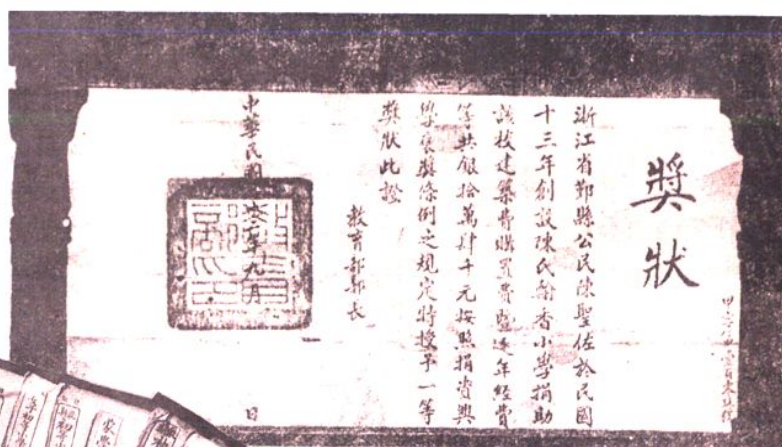 獎狀
浙江省鄞縣公民陳聖佐於民國
十三年創設陳氏翰香小學捐助
該校建築費購置費暨逐年經費
等共銀拾萬肆千元按照捐資興
學褒獎條例之規定特授予一等
獎狀此證
教育部部長
中華民國 年九月 日
教育部印